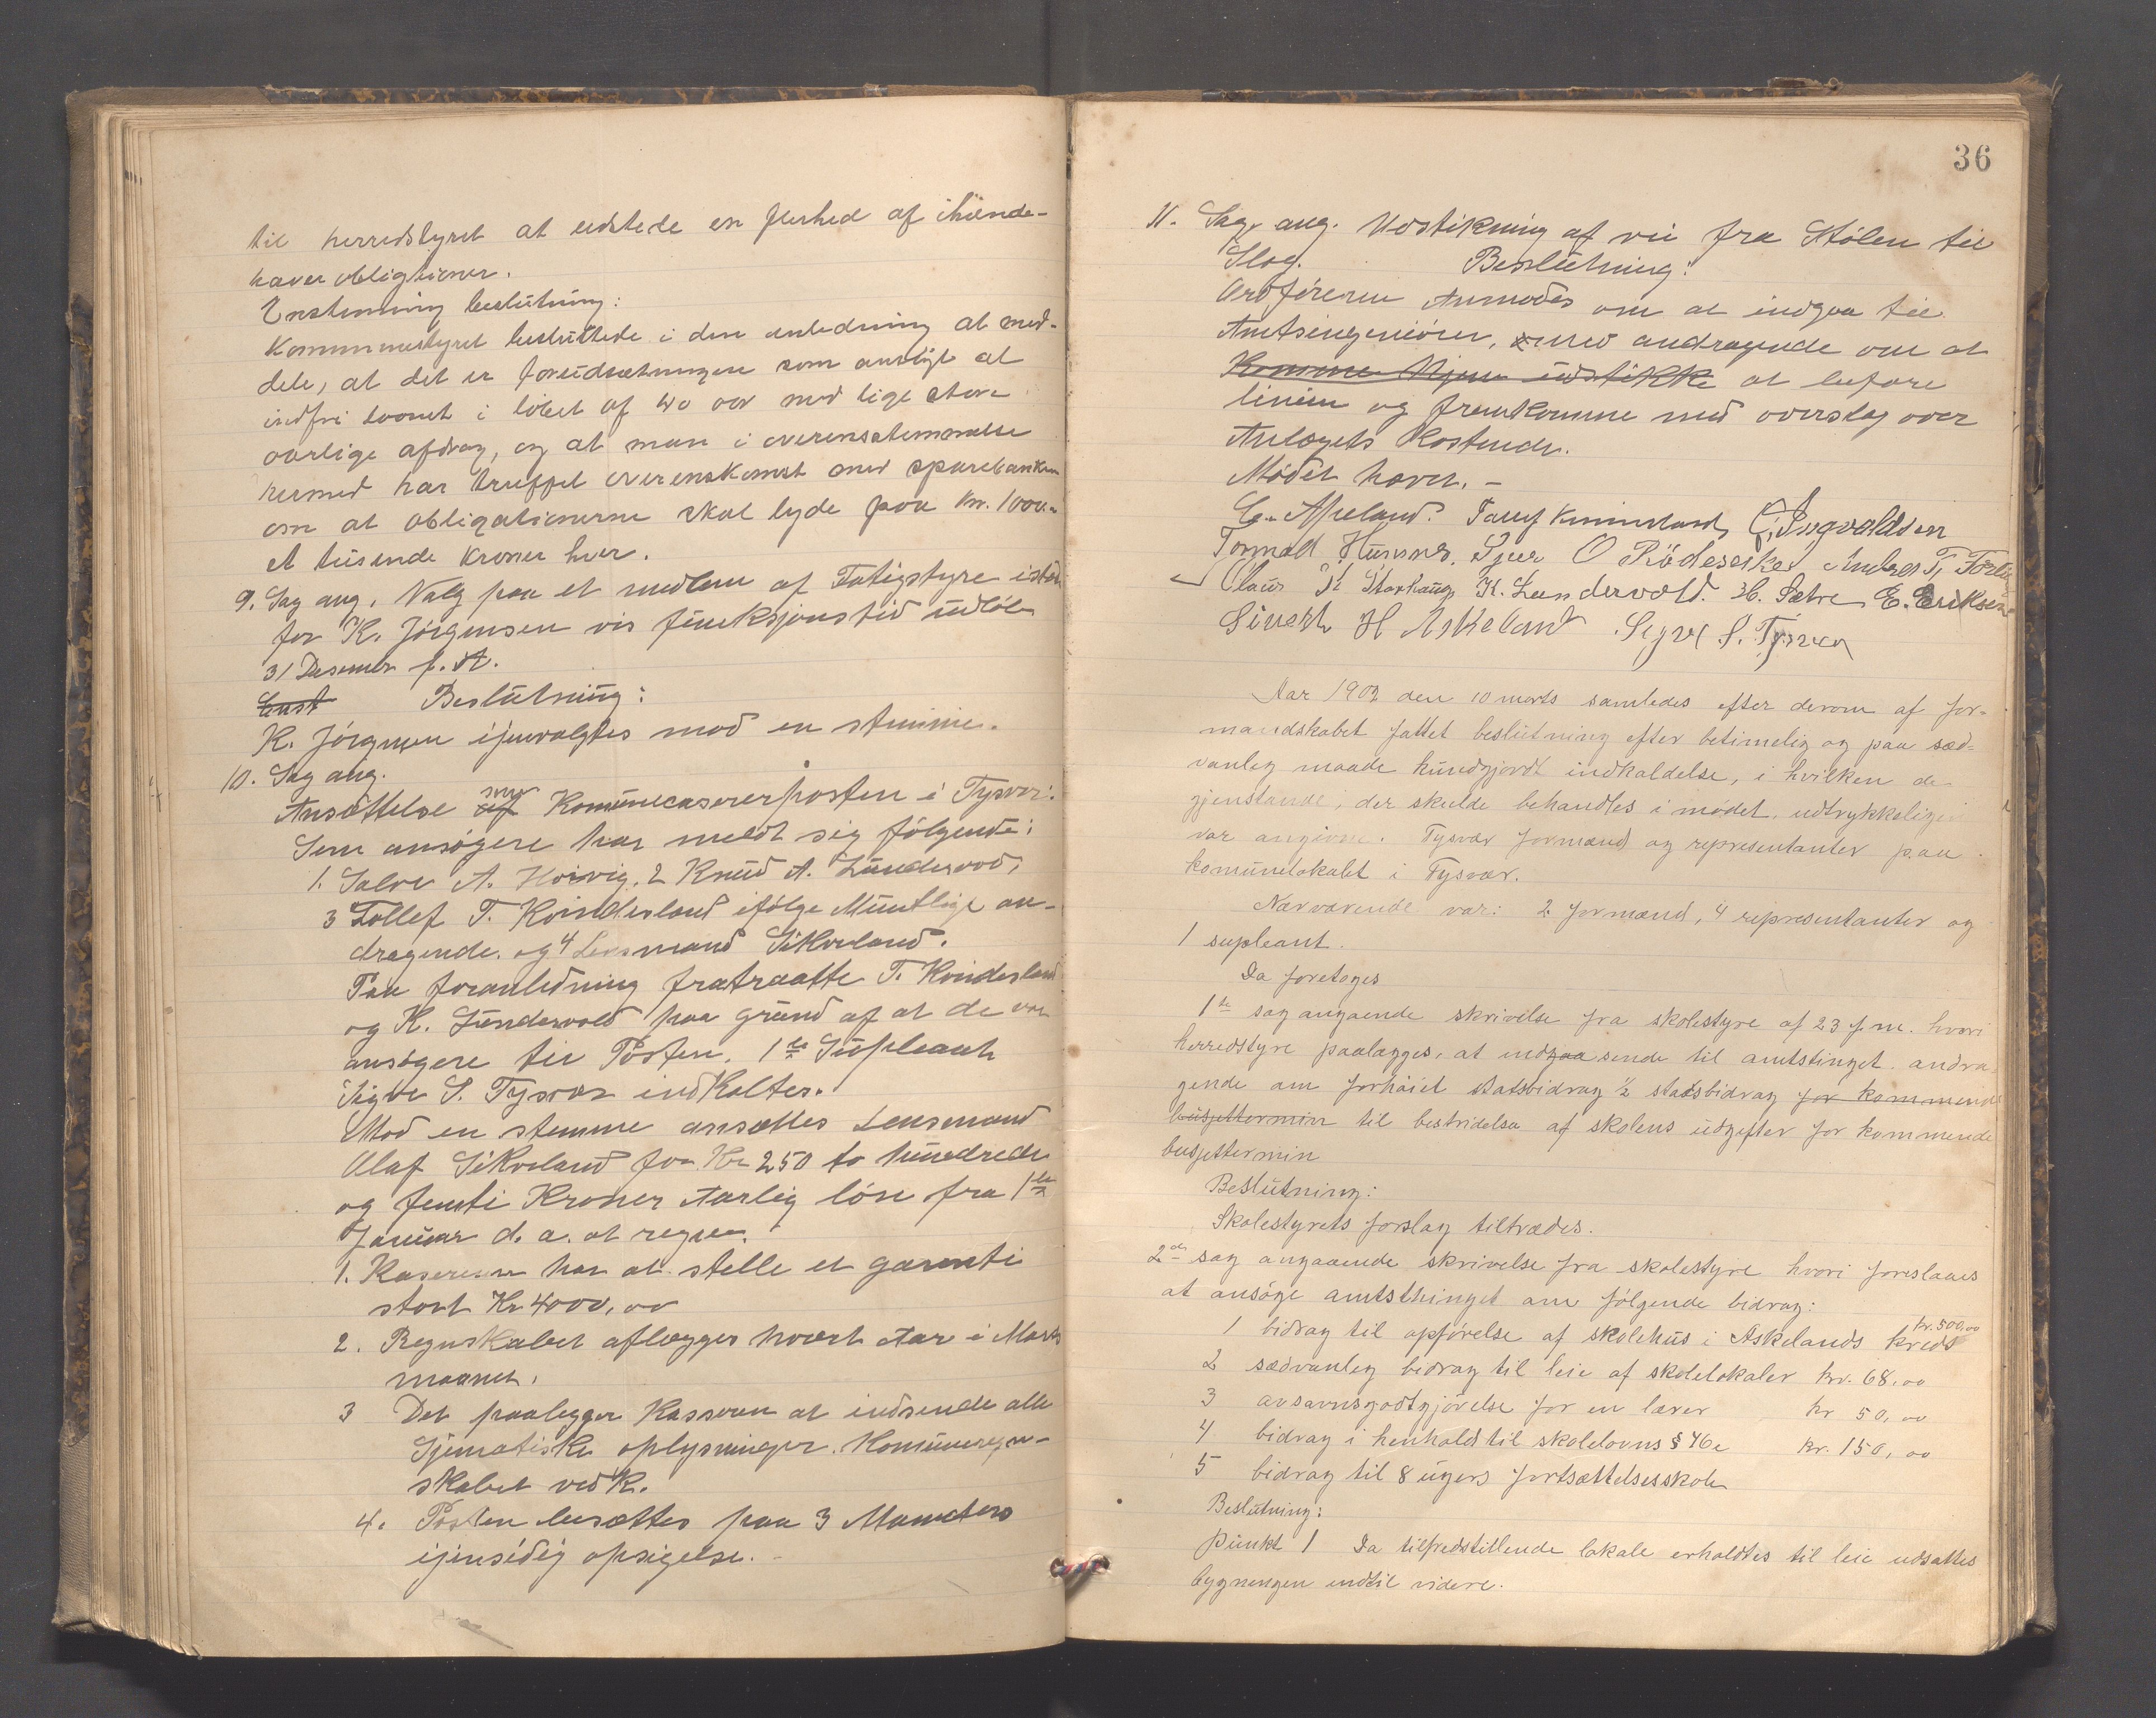 til herredstyret at udstede en flerhed af ihænde-
haver obligtioner.
Enstemmig beslutning:
Kommunestyret besluttede i den anledning at med-
dele, at det er forudsætningen som ansligt at
indfri laanet i löbet af 40 aar med lige store
aarlige afdrag, og at man i overensstemmelse
hermed har truffet overenskomst med sparebanken
om at obligationerne skal lyde paa kr. 1000.-
et tusende kroner hver.
9. Sag ang. Valg paa et medlem af Fatigstyre isted
for K. Jörgensen vis funksjonstid udlöb
31 Desember f. A.
Enst Beslutning:
K. Jörgensen ijenvalgtes mod en stemme.
10. Sag ang.
Ansættelse af Komunecasererposten i Tysvær.
Som ansögere har meldt sig fölgende:
1. Salve A. Hoivig. 2 Knud A. Lundervod,
3 Tollef T. Kvindesland ifölge Muntlige an-
dragende. og 4 Lensmand Sikveland.
Paa foranledning fratraatte T. Kvindesland
og K. Lundervold paa grund af at de var
ansögere til Posten. 1ste Supleant
Sigve S. Tysvær indkaltes.
Mod en stemme ansattes Lensmand
Olaf Sikveland for Kr 250 to hundrede
og femti Kroner Aarlig lön fra 1ste
Januar d. a. at regne.
1. Kasereren har at stelle et garanti
stort Kr 4000,00
2. Regnskabet aflægges hvert Aar i Marts
maanet.
3 Det paalegges Kassereren at indsende alle
Sjematiske oplysninger. Komuneregn-
skabet vedk.
4. Posten besættes paa 3 Maaneders
ijensidig opsigelse.
36
11. Sag. ang. Udstikning af vei fra Stölen til
Slog. Beslutning:
Ordföreren Anmodes om at indgaa til
Amtsingeniören, med andragende om at
Komme Hjem udstikke at befare
linien og fremkomme med overslag over
Anlægets Kostende.
Mödet hævet. -
C. Apeland. Tollef Kvinnesland G. Ingvaldsen
Tormod Hummes. Sjur O Rödeseike Anders T. Förli
Olaus K Storhaug K. Lundervold. H. Sætre E. Eriksen
Sivert H Askeland Sigve S. Tysvær
Aar 1902 den 10 marts samledes efter derom af for-
mandskabet fattet beslutning efter betimelig og paa sæd-
vanlig maade kundgjordt indkaldelse, i hvilken de
gjenstande, der skulde behandles i mödet, udtrykkeligen
var angivne. Tysvær formænd og representanter paa
komunelokalet i Tysvær.
Nærværende var: 2 formænd, 4 representanter og
1 supleant.
Da foretoges
1ste sag angaaende skrivelse fra skolestyre af 23 f. m. hvori
herredstyre paalægges, at indgaa sende til amtstinget andra
gende om forhöiet statsbidrag 1/2 statsbidrag for kommende
budjettermin til bestridelse af skolens udgifter for kommende
budjettermin
Beslutning:
Skolestyrets forslag tiltrædes.
2den sag angaaende skrivelse fra skolestyre hvori foreslaaes
at ansöge amtsthinget om fölgende bidrag:
1 bidrag til opförelse af skolehus i Askelands kreds kr. 500,00
2 sædvanleg bidrag til leie af skolelokaler kr. 68.00
3 avsavnsgodtgjörelse for en lærer kr 50,00
4 bidrag i henhold til skolelovens § 46e kr. 150,00
5 bidrag til 8 ugers fortsættelsesskole
Beslutning:
punkt 1 Da tilfredstillende lokale erholdtes til leie udsattes
bygningen indtil videre.